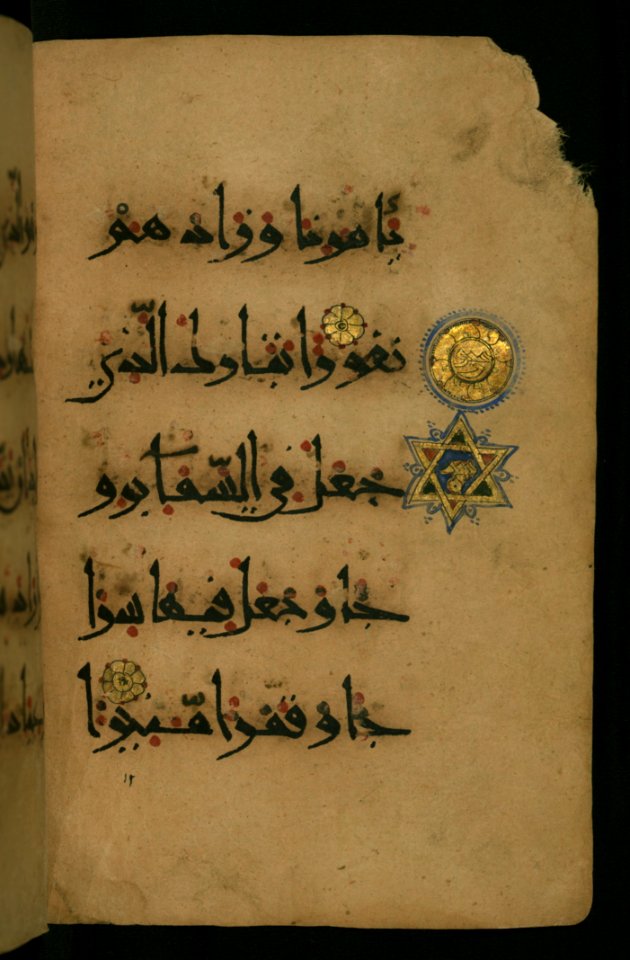 تأمرنا وزادهم
نفورا تبارك الذي
جعل في السماء برو
جا وجعل فيها سرا
جا وقمرا منيرا